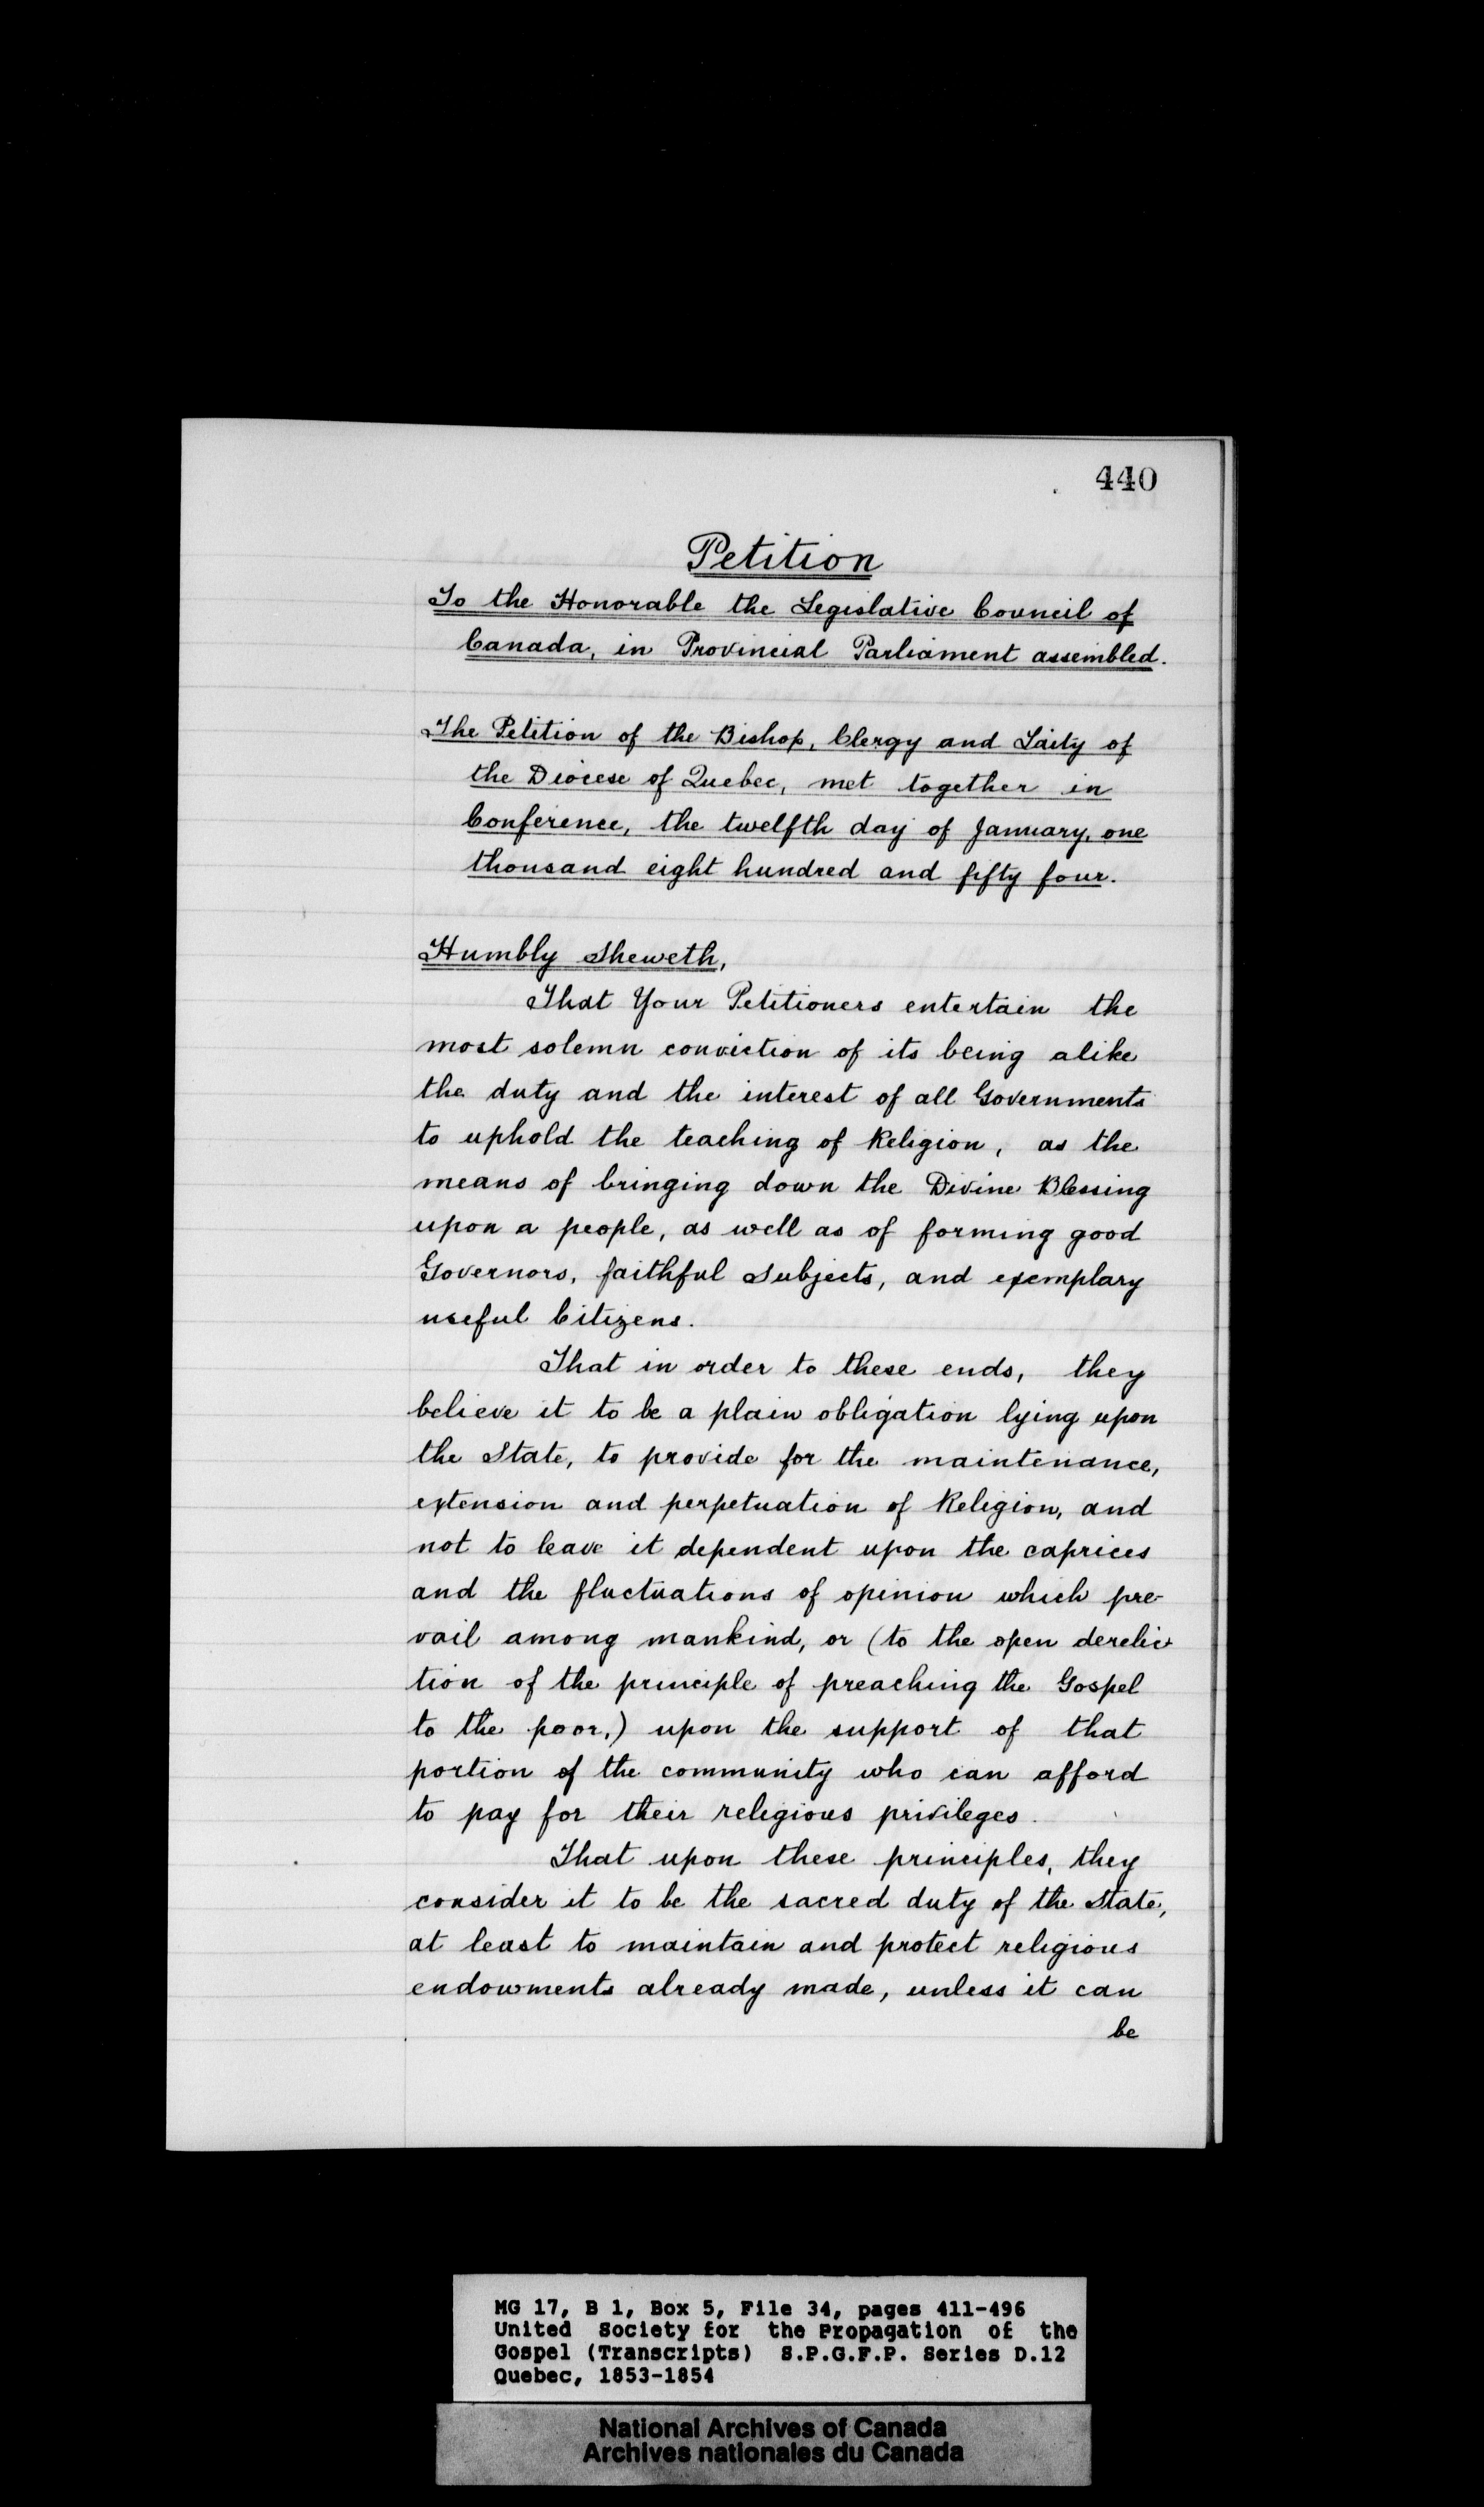 440
Petition
To the Honorable the Legislative Council of
Canada, in Provincial Parliament assembled.
The Petition of the Bishop, Clergy and Laity of
the Diocese of Quebec, met together in
Conference, the twelfth day of January, one
thousand eight hundred and fifty four.
Humbly Sheweth,
That Your Petitioners entertain the
most solemn conviction of its being alike
the duty and the interest of all Governments
to uphold the teaching of Religion, as the
means of bringing down the Divine Blessing
upon a people, as well as of forming good
Governors, faithful Subjects, and exemplary
useful Citizens.
That in order to these ends, they
believe it to be a plain obligation lying upon
the State, to provide for the maintenance,
extension and perpetuation of Religion, and
not to leave it dependent upon the caprices
and the fluctuations of opinion which pre-
vail among mankind, or (to the open derelic-
tion of the principle of preaching the Gospel
to the poor,) upon the support of that
portion of the community who can afford
to pay for their religious privileges.
That upon these principles, they
consider it to be the sacred duty of the State,
at least to maintain and protect religious
endowments already made, unless it can
be
MG 17, B 1, Box 5, File 34, pages 411-496
United Society for the Propagation of the
Gospel (Transcripts) S.P.G.F.P. Series D.12
Quebec, 1853-1854
National Archives of Canada
Archives nationales du Canada